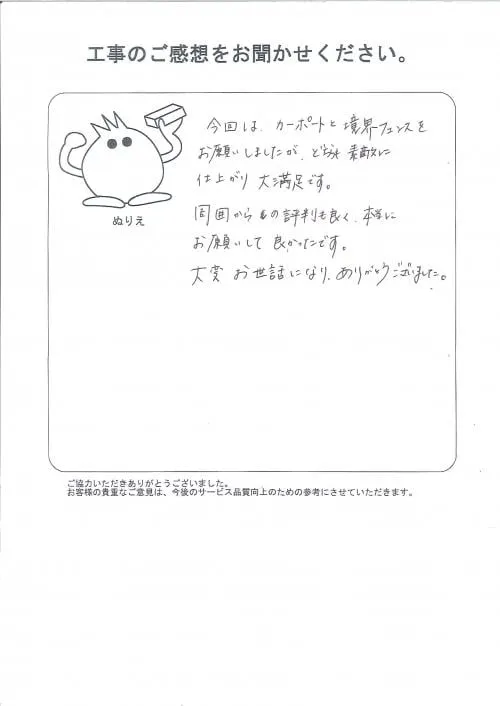 工事のご感想をお聞かせください。
今回は、カーポートと境界フェンスを
お願いしましたが、どちらも素敵に
仕上がり大満足です。
周囲からもの評判も良く、本当に
お願いして良かったです。
大変お世話になり、ありがとうございました。
ぬりえ
ご協力いただきありがとうございました。
お客様の貴重なご意見は、今後のサービス品質向上のための参考にさせていただきます。